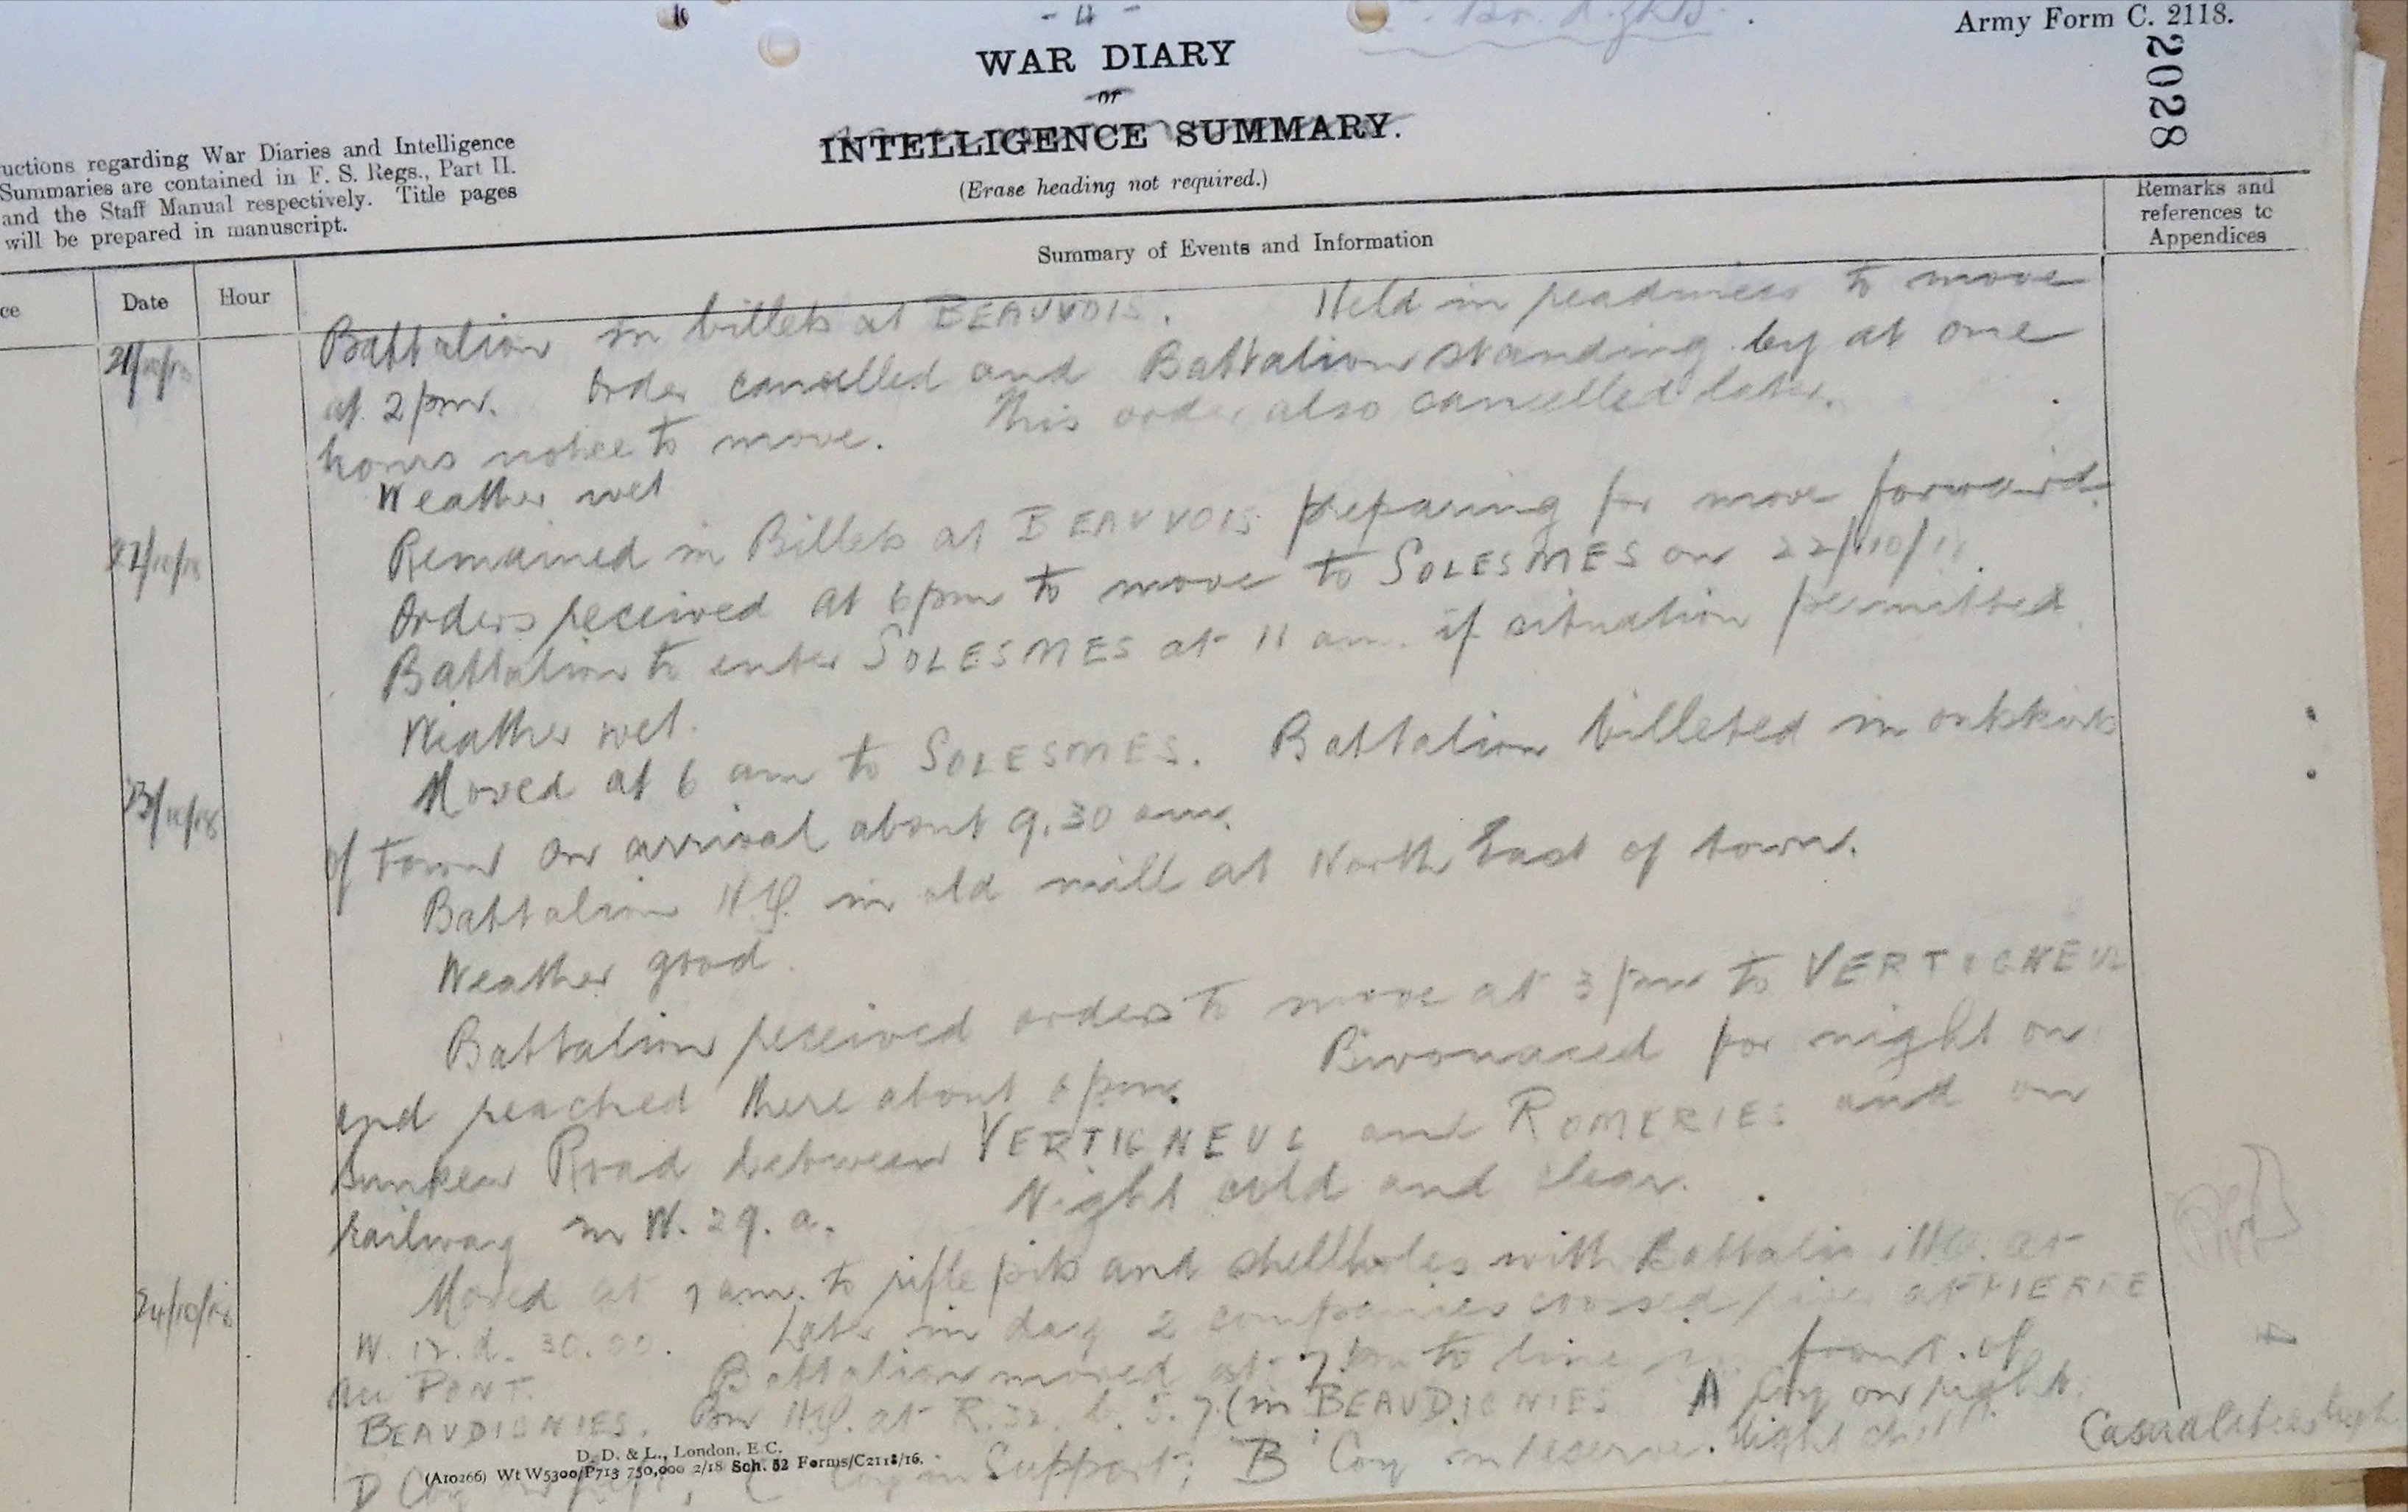 - 4 -
Army Form C. 2118.
2028
WAR DIARY
or
INTELLIGENCE SUMMARY.
(Erase heading not required.)
uctions regarding War Diaries and Intelligence
Summaries are contained in F. S. Regs., Part II.
and the Staff Manual respectively. Title pages
will be prepared in manuscript.
Summary of Events and Information
Remarks and
references to
Appendices
ce
Date
Hour
Battalion in billets at BEAUVOIS. Held in readiness to move
at 2 pm. Order cancelled and Battalion standing by at one
hours notice to move. This order also cancelled later.
Weather wet
Remained in Billets at BEAUVOIS preparing for move forward.
Orders received at 6 pm to move to SOLESMES on 22/10/18.
Battalion to enter SOLESMES at 11 am. if situation permitted.
Weather wet.
23/10/18
Moved at 6 am to SOLESMES. Battalion billeted in outskirts
of Town on arrival about 9.30 am.
Battalion HQ. in old mill at North East of town.
Weather good.
Battalion received orders to move at 3 pm to VERTIGNEUL
and reached there about 6 pm. Bivouaced for night on
Sunken Road between VERTIGNEUL and ROMERIES and on
railway in W. 29. a. Night cold and clear.
24/10/18
Moved at am. to rifle pits and shellholes with Battalion HQ. at
W. Later in day 2 companies crossed river at PIERRE
au PONT. Battalion moved at 7 pm to line in front of
BEAUDIGNIES. Bn HQ. at R.32. b. 5. 7 (in BEAUDIGNIES A Coy on right.
D Coy on left, C Coy in Support; B Coy in reserve. Casualties
D. D. & L., London, E.C.
(A10266) Wt W5300/P713 750,000 2/18 Sch. 52 Forms/C2118/16.